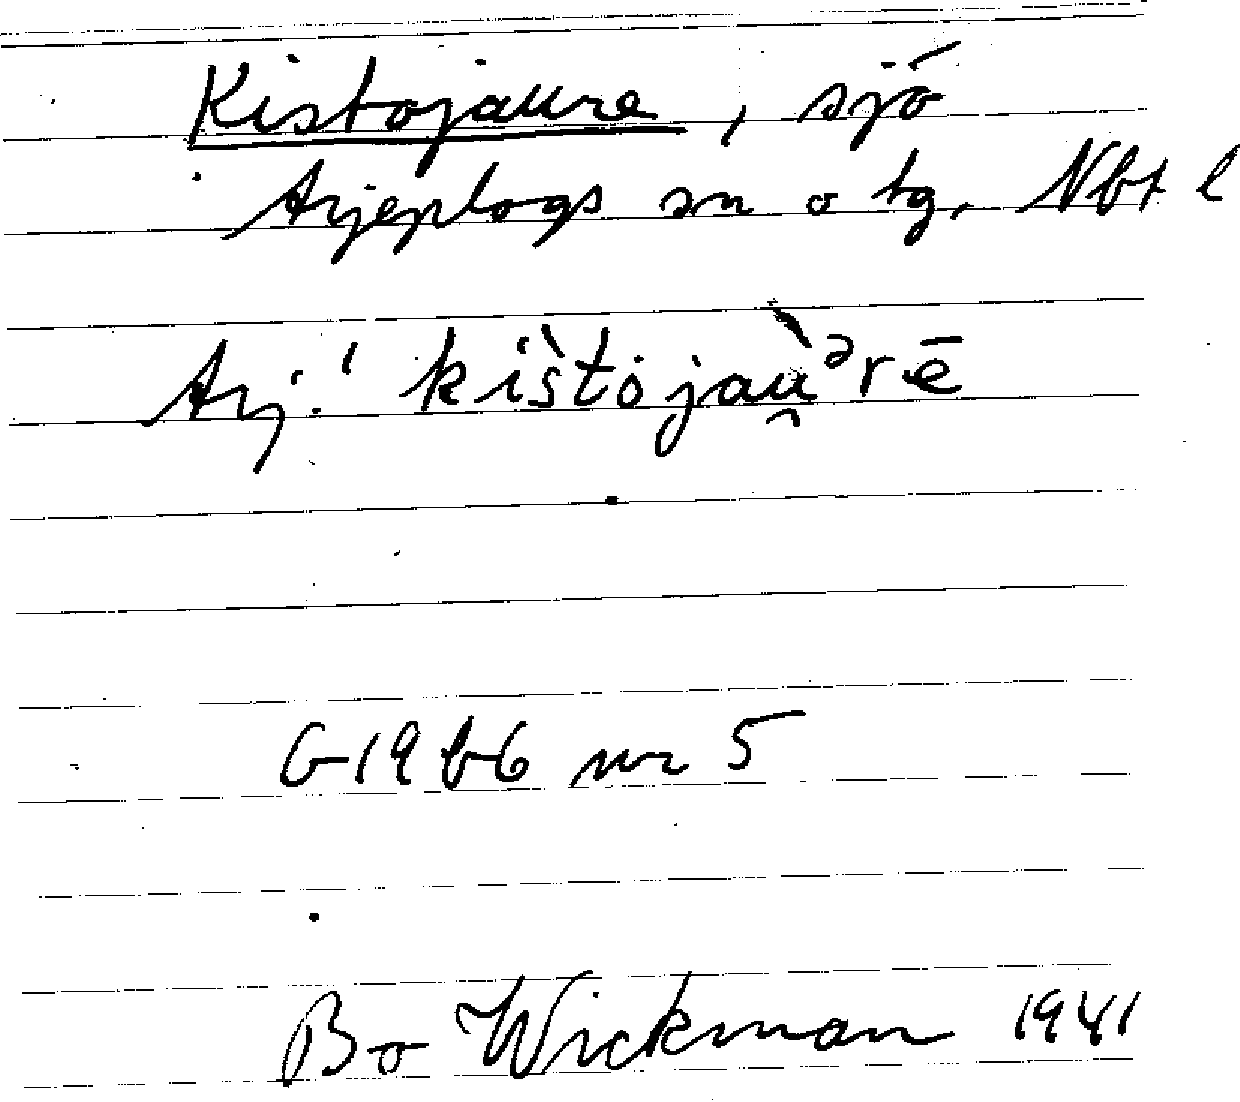 Kistojaure, sjö
Arjeplogs sn o tg, Nbt l
Arj.' ki̍s̀tojaù̯ᵊrē
G1966 nr 5
Bo Wickman 1941